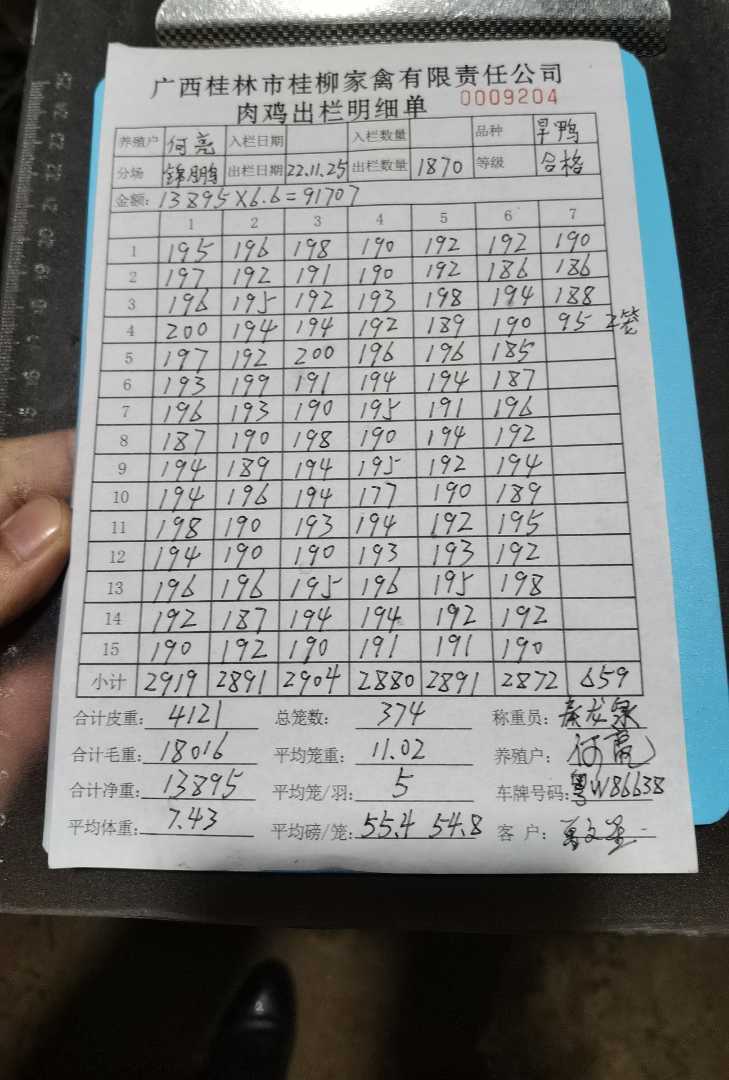 广西桂林市桂柳家禽有限责任公司
肉鸡出栏明细单 0009204
养殖户 何亮 入栏日期 入栏数量 品种 旱鸭
分场 锦鹏 出栏日期 22.11.25 出栏数量 1870 等级 合格
金额: 13895×6.6=91707
1 2 3 4 5 6 7
1 195 196 198 190 192 192 190
2 197 192 191 190 192 186 186
3 196 195 192 193 198 194 188
4 200 194 194 192 189 190 95 2笼
5 197 192 200 196 196 185
6 193 199 191 194 194 187
7 196 193 190 195 191 196
8 187 190 198 190 194 192
9 194 189 194 195 192 194
10 194 196 194 177 190 189
11 198 190 193 194 192 195
12 194 190 190 193 193 192
13 196 196 195 196 195 198
14 192 187 194 194 192 192
15 190 192 190 191 191 190
小计 2919 2891 2904 2880 2891 2872 659
合计皮重: 4121 总笼数: 374 称重员: 秦龙泉
合计毛重: 18016 平均笼重: 11.02 养殖户: 何亮
合计净重: 13895 平均笼/羽: 5 车牌号码: 粤W86638
平均体重: 7.43 平均磅/笼: 55.4 54.8 客户: